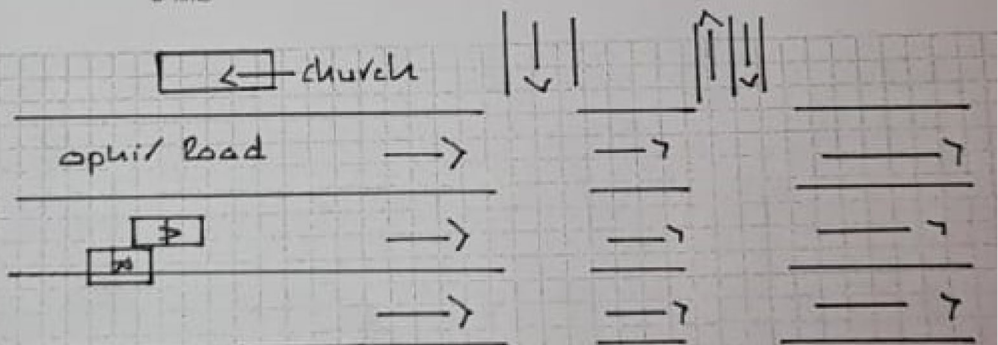 church
ophir Road
A